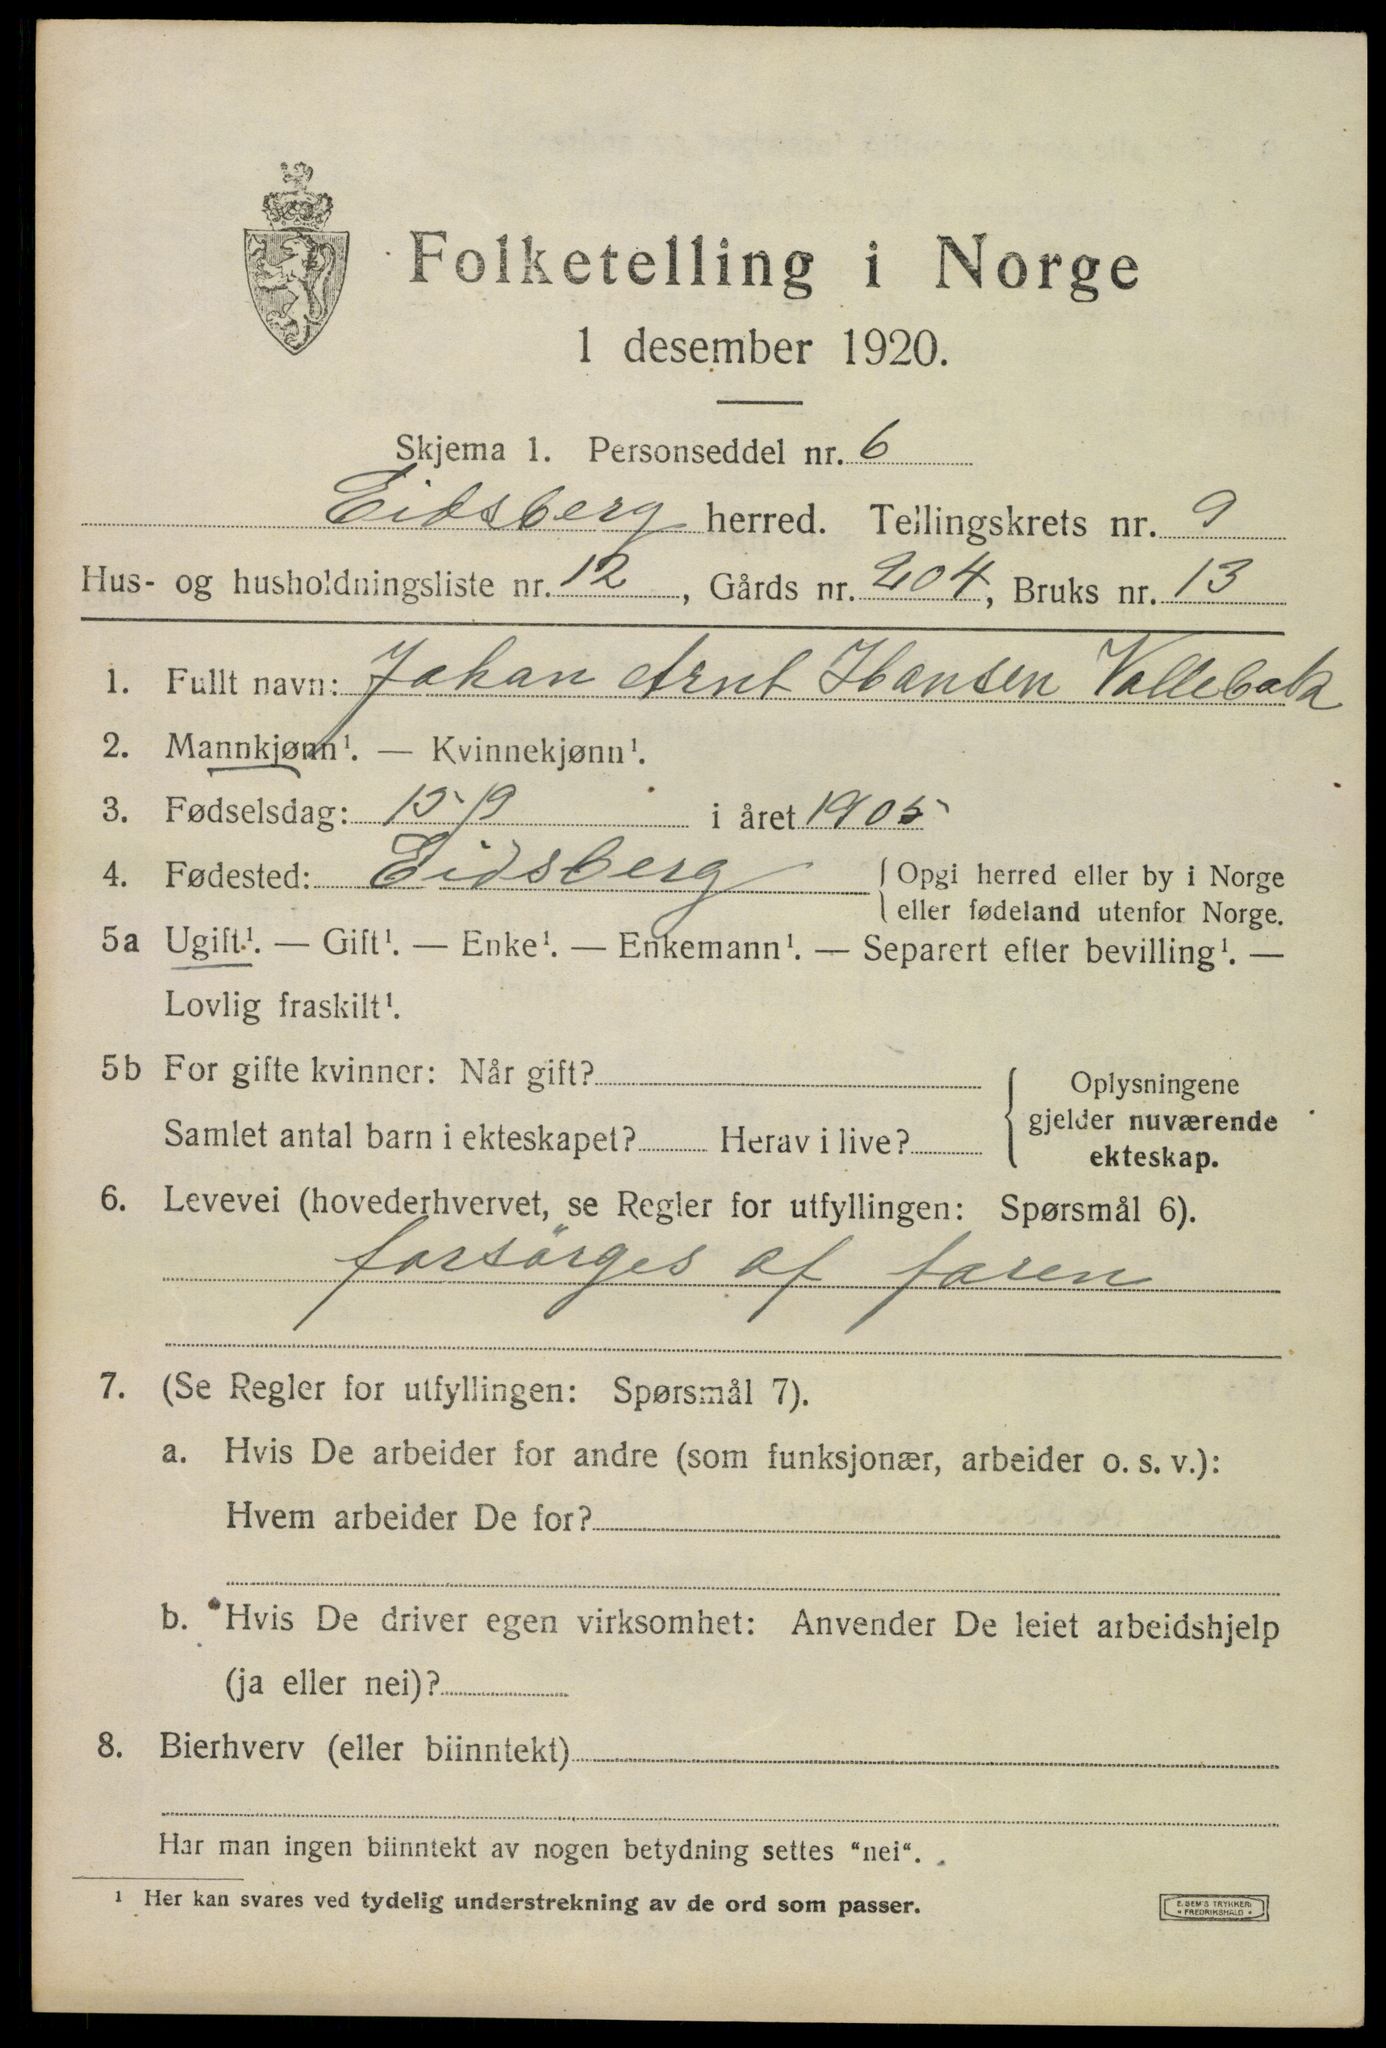 Folketelling i Norge
1 desember 1920.
Skjema 1. Personseddel nr. 6
Eidsberg herred. Tellingskrets nr. 9
Hus- og husholdningsliste nr. 12, Gårds nr. 204, Bruks nr. 13
1. Fullt navn: Johan Arnt Hansen Vollebak
2. Mannkjønn¹. — Kvinnekjønn¹.
3. Fødselsdag: 15/9 i året 1905
4. Fødested: Eidsberg { Opgi herred eller by i Norge
eller fødeland utenfor Norge.
5a Ugift¹. — Gift¹. — Enke¹. — Enkemann¹. — Separert efter bevilling¹. —
Lovlig fraskilt¹.
5b For gifte kvinner: Når gift?
Samlet antal barn i ekteskapet? Herav i live?
{ Oplysningene
gjelder nuværende
ekteskap.
6. Levevei (hovederhvervet, se Regler for utfyllingen: Spørsmål 6).
forsörges af faren
7. (Se Regler for utfyllingen: Spørsmål 7).
a. Hvis De arbeider for andre (som funksjonær, arbeider o. s. v.):
Hvem arbeider De for?
b. Hvis De driver egen virksomhet: Anvender De leiet arbeidshjelp
(ja eller nei)?
8. Bierhverv (eller biinntekt)
Har man ingen biinntekt av nogen betydning settes "nei".
¹ Her kan svares ved tydelig understrekning av de ord som passer.
E. SEM'S TRYKKERI
* FREDRIKSHALD *